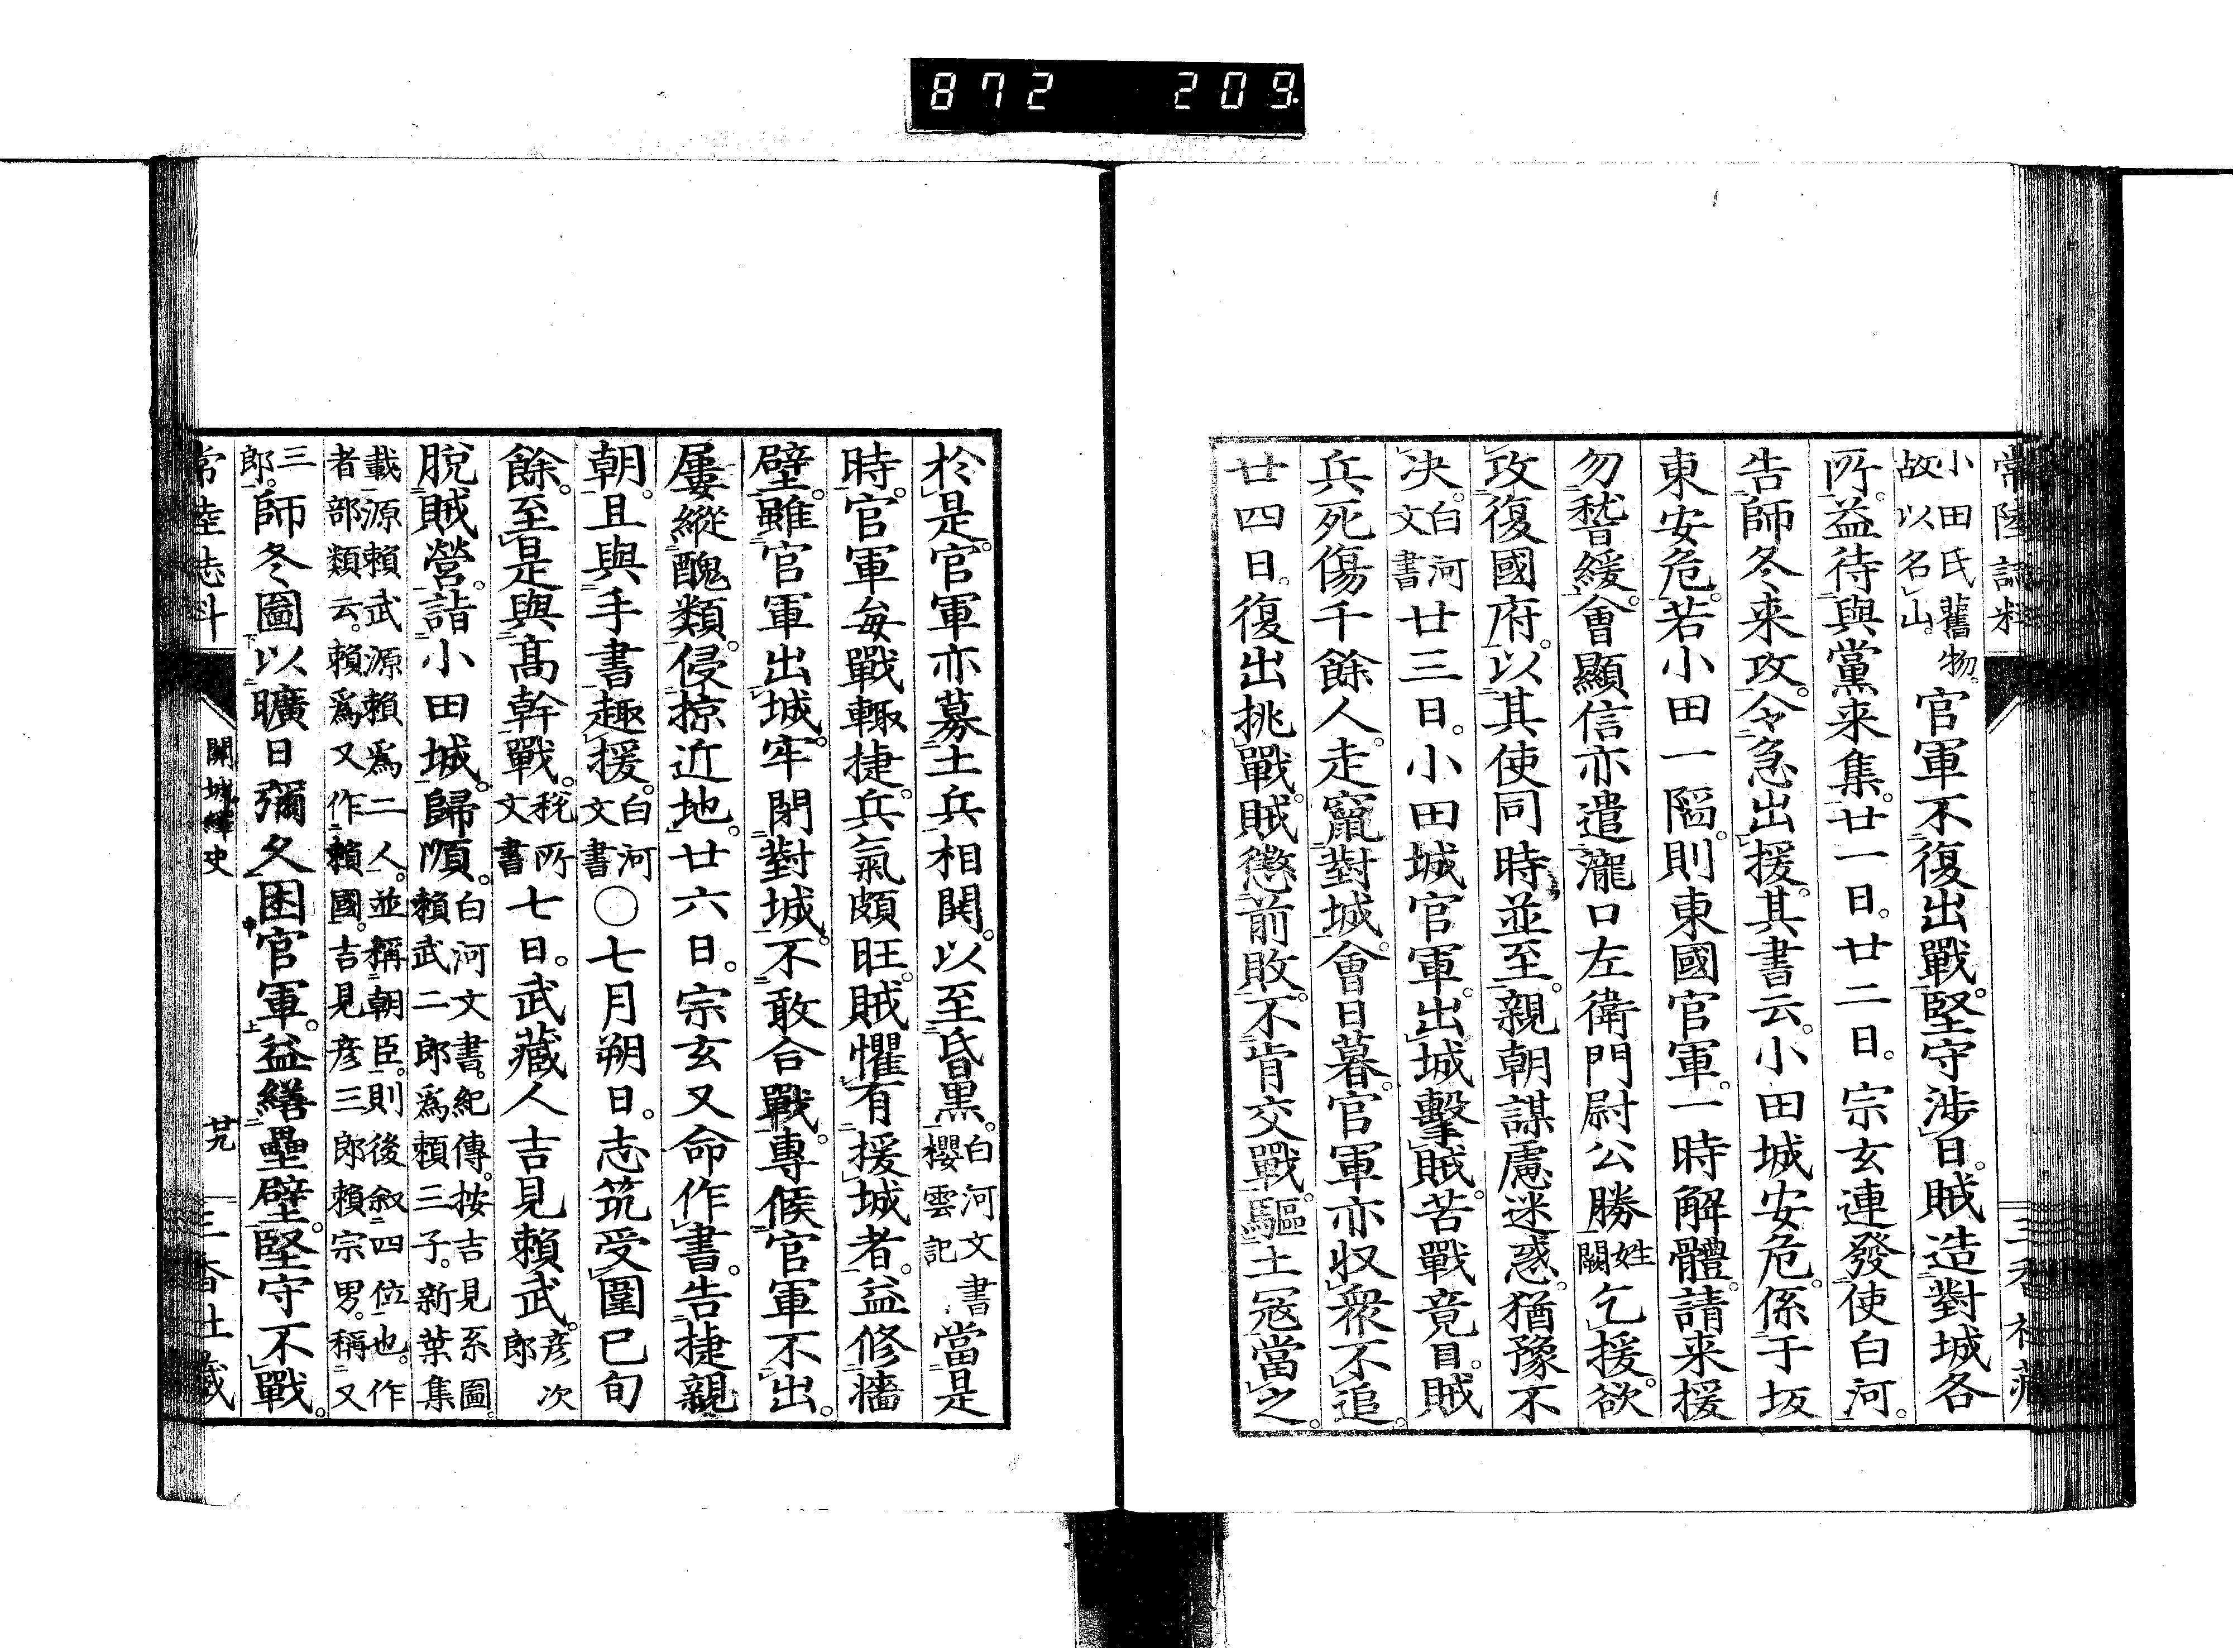 872 209.
常陸誌料
三香社藏
小田氏舊物。
故以名山。
官軍不復出戰。堅守涉日。賊造對城各
所。益待與黨来集。廿一日。廿二日。宗玄連發使白河。
告師冬来攻。令急出援。其書云。小田城安危。係于坂
東安危。若小田一陷。則東國官軍。一時解體。請来援
勿稽緩。會顯信亦遣瀧口左衛門尉公勝姓闕乞援。欲
攻復國府。以其使同時並至。親朝謀慮迷惑。猶豫不
决。白河文書廿三日。小田城官軍。出城擊賊。苦戰竟日。賊
兵死傷千餘人。走竄對城。會日暮。官軍亦收衆不追。
廿四日。復出挑戰。賊懲前敗。不肯交戰。驅土冦當之。
於是。官軍亦募土兵相閧。以至昏黒。白河文書櫻雲記當是
時。官軍每戰輙捷。兵氣頗旺。賊懼有援城者。益修牆
壁。雖官軍出城。牢閉對城。不敢合戰。專候官軍不出。
屢縱醜類。侵掠近地。廿六日。宗玄又命作書。告捷親
朝。且與手書趣援。白河文書○七月朔日。志筑受圍已旬
餘。至是與高幹戰。税所文書七日。武藏人吉見賴武。彦次郎
脱賊營。詣小田城。歸順。白河文書。紀傳。按吉見系圖。賴武二郎爲賴三子。新葉集
載源賴武源賴爲二人。並稱朝臣。則後叙四位也。作者部類云。賴爲又作賴國。吉見彦三郎賴宗男。稱又
三郎。師冬圖以曠日彌久困官軍。益繕壘壁。堅守不戰。
常陸志料
關城繹史
廿九
三香社藏